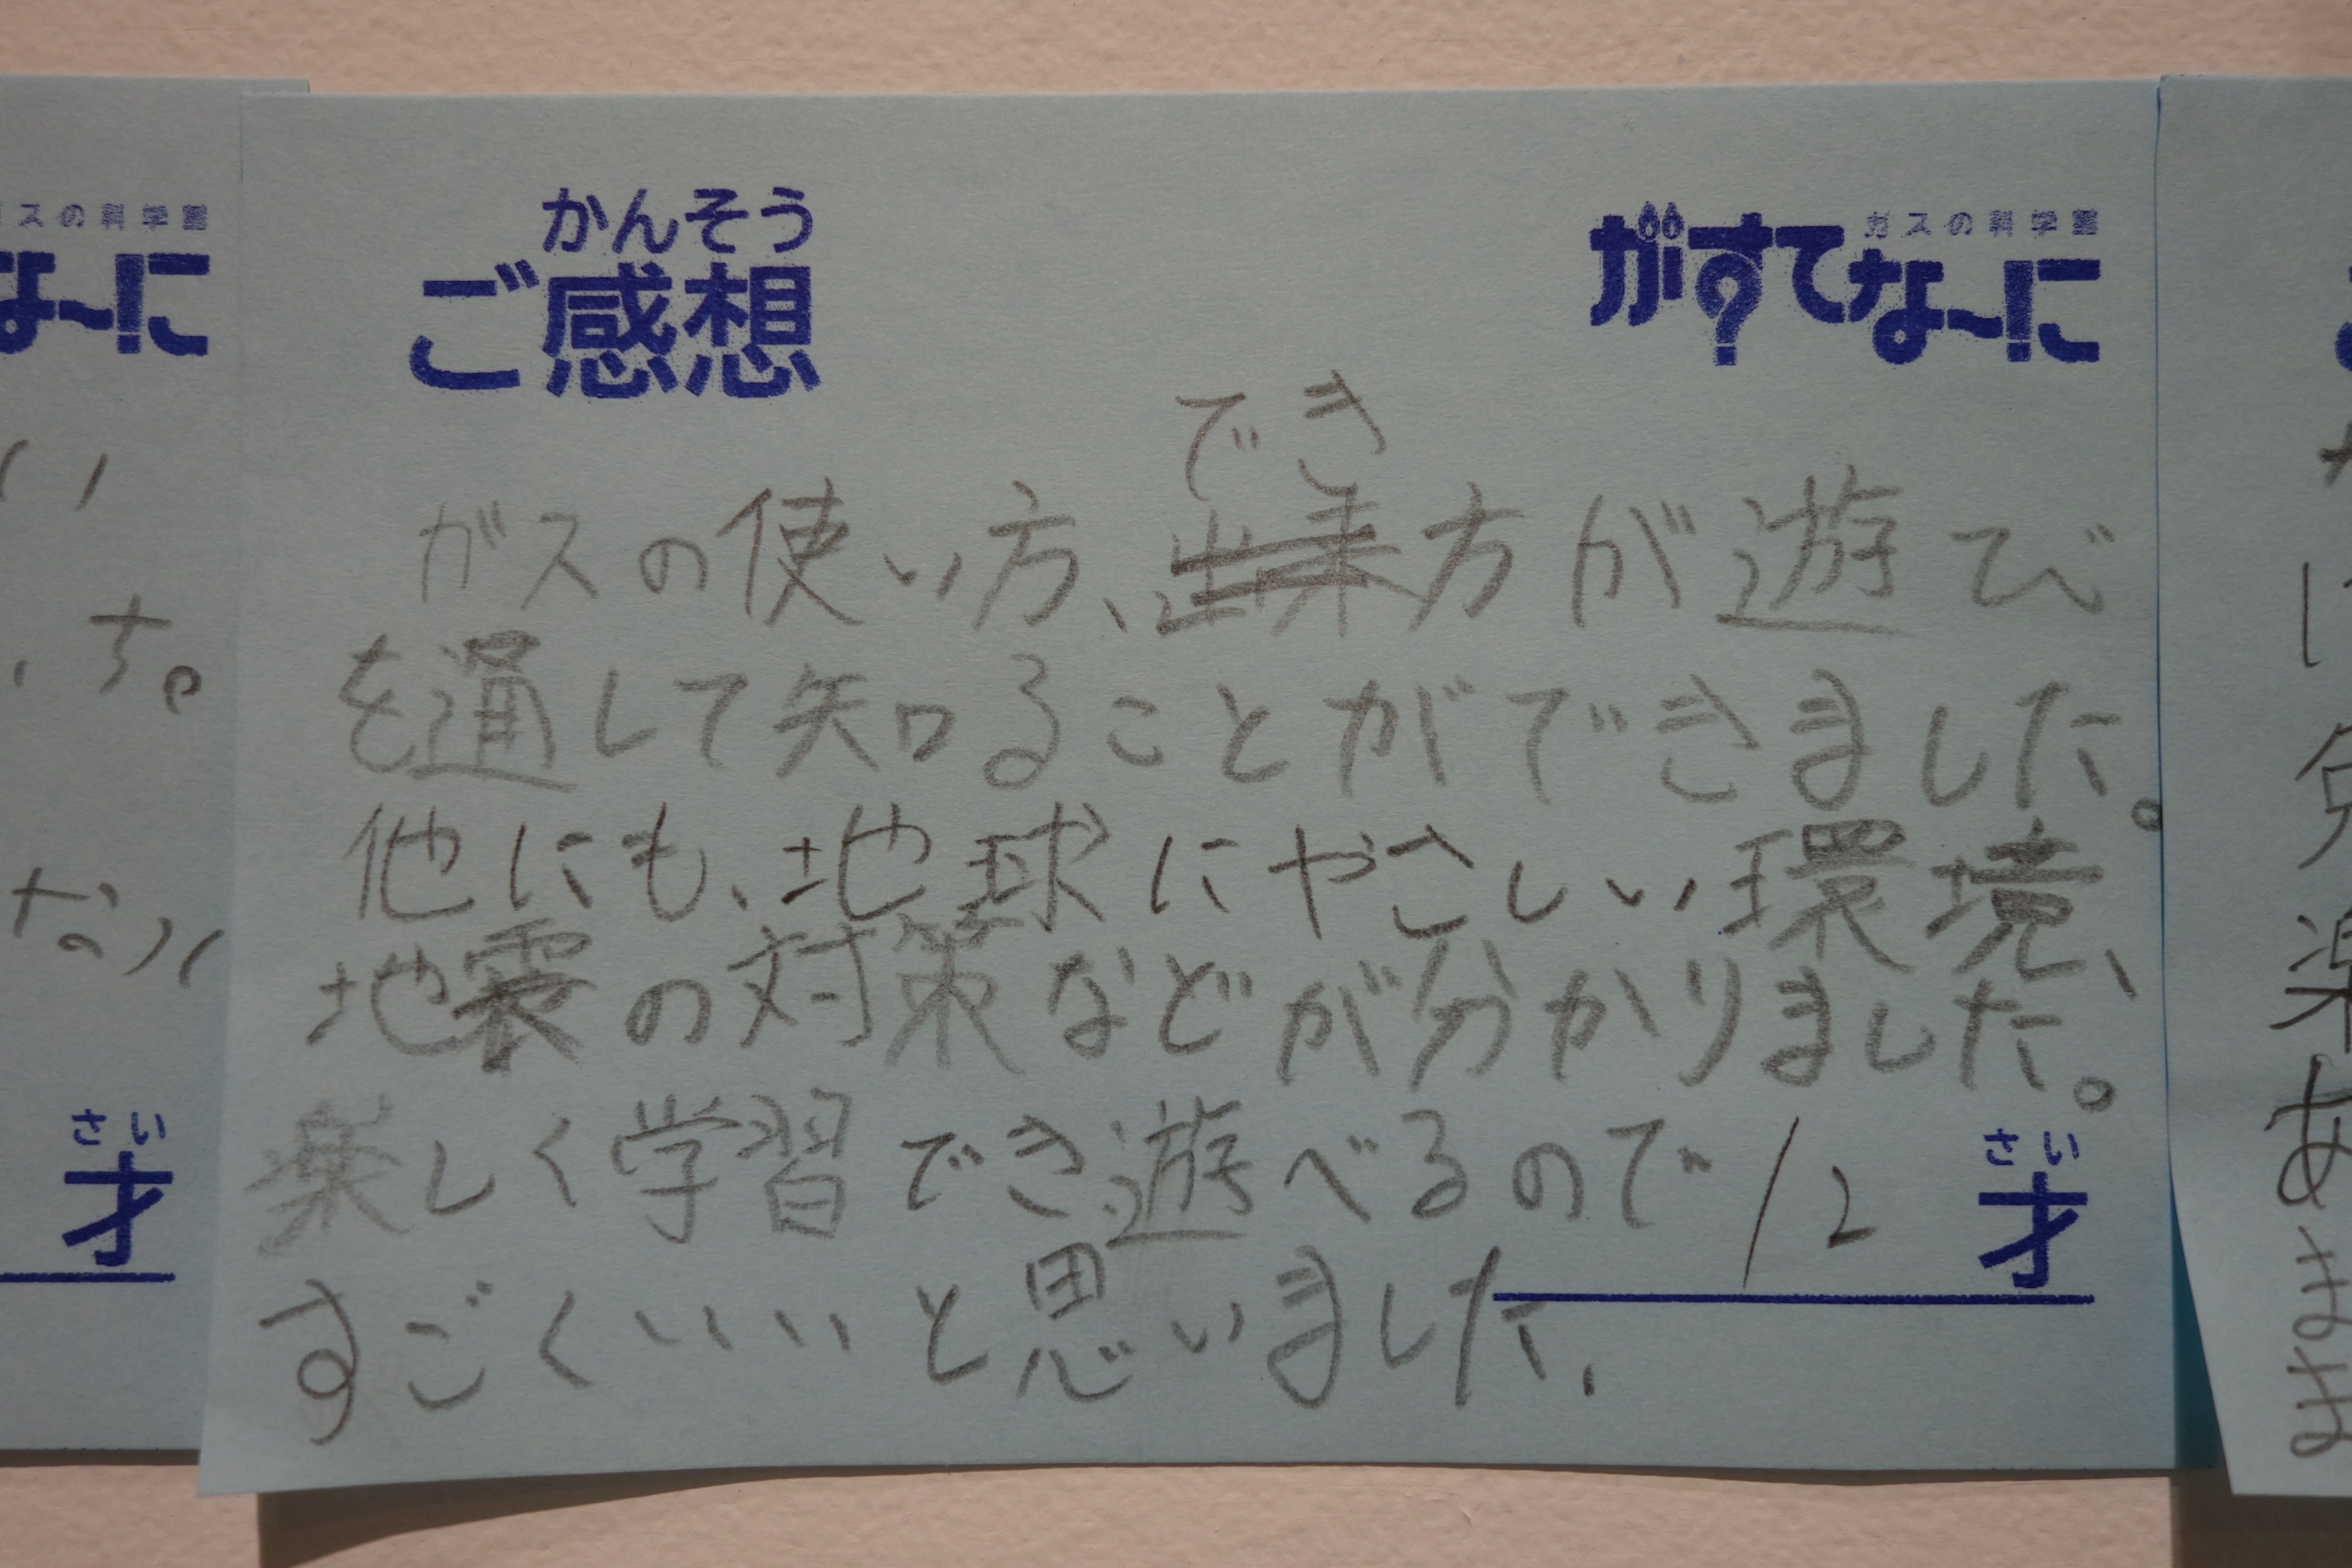 かんそう
ご感想
ガスの科学館
がすてなーに
でき
ガスの使い方、出来方が遊び
を通して知ることができました。
他にも、地球にやさしい環境、
地震の対策などが分かりました。
楽しく学習でき遊べるので
すごくいいと思いました.
12才
さい
スの科学館
なーに
す。
さい
才